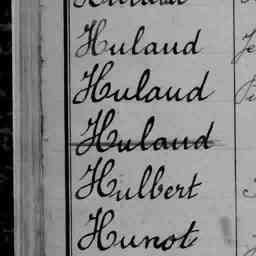 Huland
Huland
Huland
Hulbert
Hunot